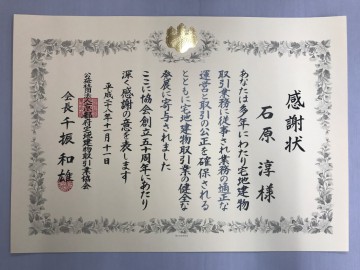 感謝状
石原淳様
あなたは多年にわたり宅地建物
取引業務に従事され業務の適正な
運営と取引の公正を確保される
とともに宅地建物取引業の健全な
発展に寄与されました
ここに協会創立五十周年にあたり
深く感謝の意を表します
平成二十八年十一月十一日
公益社団法人京都府宅地建物取引業協会
会長千振和雄